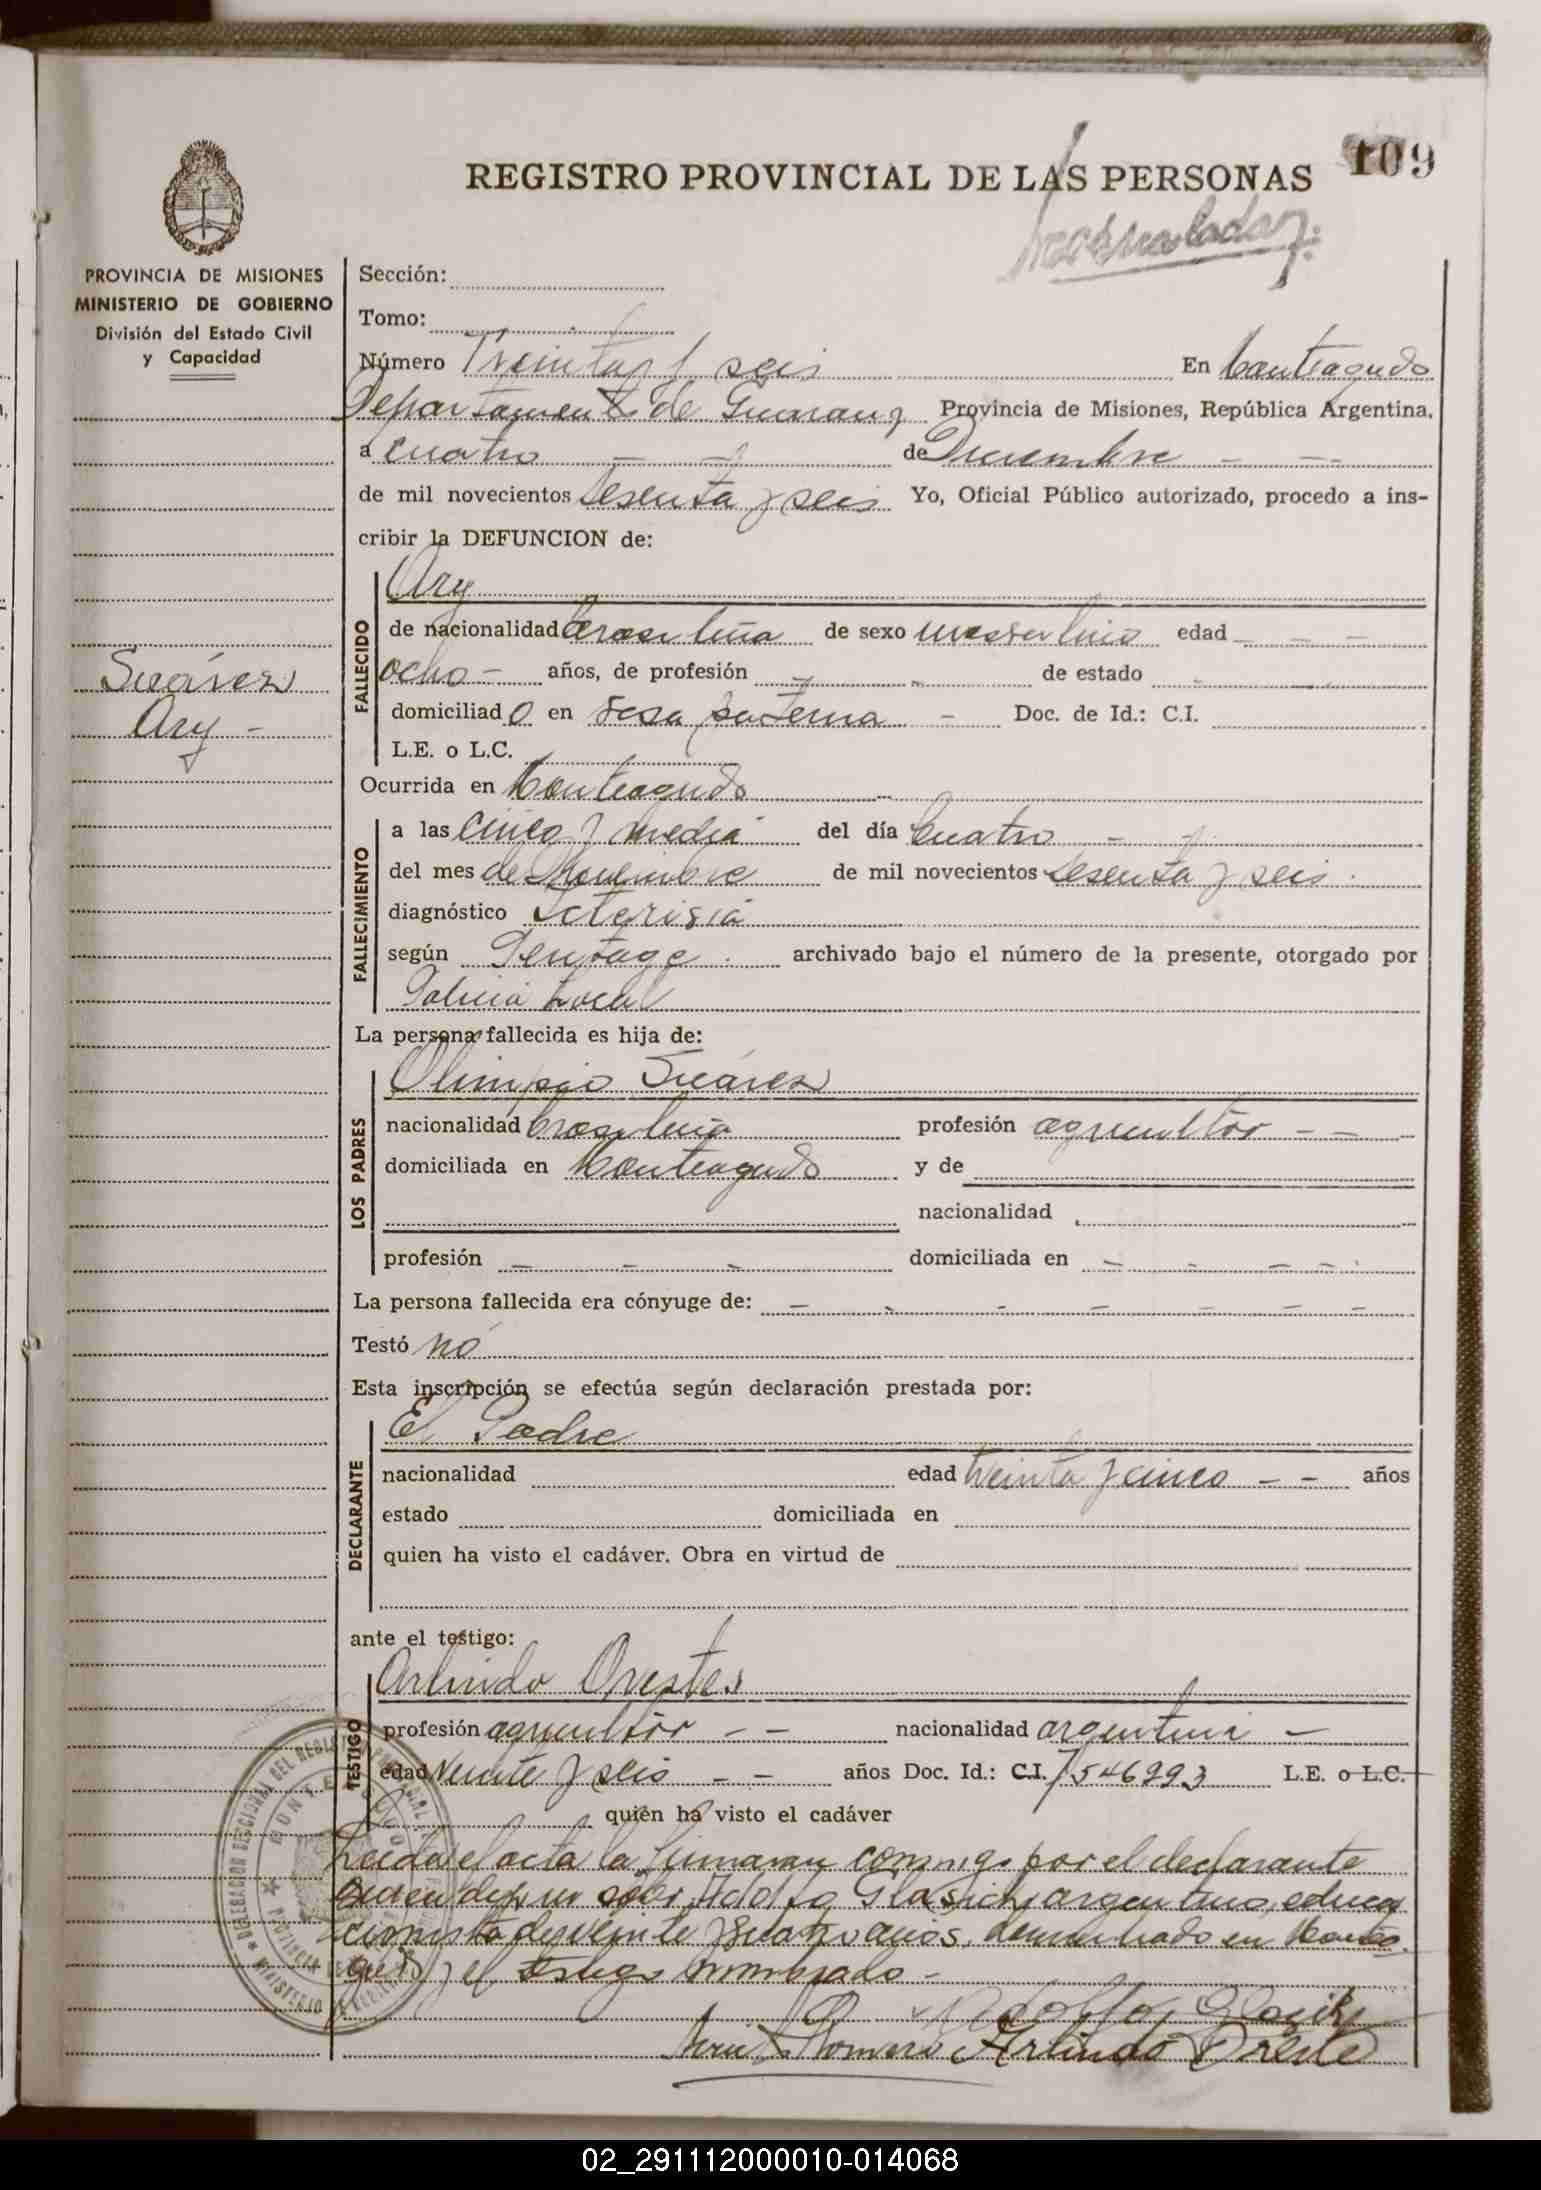 109
REGISTRO PROVINCIAL DE LAS PERSONAS
PROVINCIA DE MISIONES
MINISTERIO DE GOBIERNO
División del Estado Civil
y Capacidad
Suárez
Ary -
Sección:
Tomo:
Número Treinta y seis En Monteagudo
Departamento de Guarany Provincia de Misiones, República Argentina,
a cuatro de Diciembre
de mil novecientos sesenta y seis Yo, Oficial Público autorizado, procedo a ins-
cribir la DEFUNCION de:
FALLECIDO
Ary
de nacionalidad brasileña de sexo masculino edad
ocho años, de profesión de estado
domiciliado en casa paterna Doc. de Id.: C.I.
L.E. o L.C.
Ocurrida en Monteagudo
FALLECIMIENTO
a las cinco y media del día cuatro
del mes de de mil novecientos sesenta y seis
diagnóstico Ictericia
según archivado bajo el número de la presente, otorgado por
Policia Local
La persona fallecida es hija de:
LOS PADRES
Olimpio Suárez
nacionalidad brasileña profesión agricultor
domiciliada en Monteagudo y de
nacionalidad
profesión domiciliada en
La persona fallecida era cónyuge de:
Testó no
Esta inscripción se efectúa según declaración prestada por:
DECLARANTE
El Padre
nacionalidad edad treinta y cinco años
estado domiciliada en
quien ha visto el cadáver. Obra en virtud de
ante el testigo:
TESTIGO
Arlindo Orestes
profesión agricultor nacionalidad argentina
edad veinte y seis años Doc. Id.: C.I. 7546993 L.E. o L.C.
quien ha visto el cadáver
Leida el acta la firman conmigo por el declarante
quien dijo no saber, Adolfo Glasich, argentino, educa
cionista de veinte y cuatro años, domiciliado en Montea
gudo y el testigo nombrado -
Arlindo Oreste
02_291112000010-014068